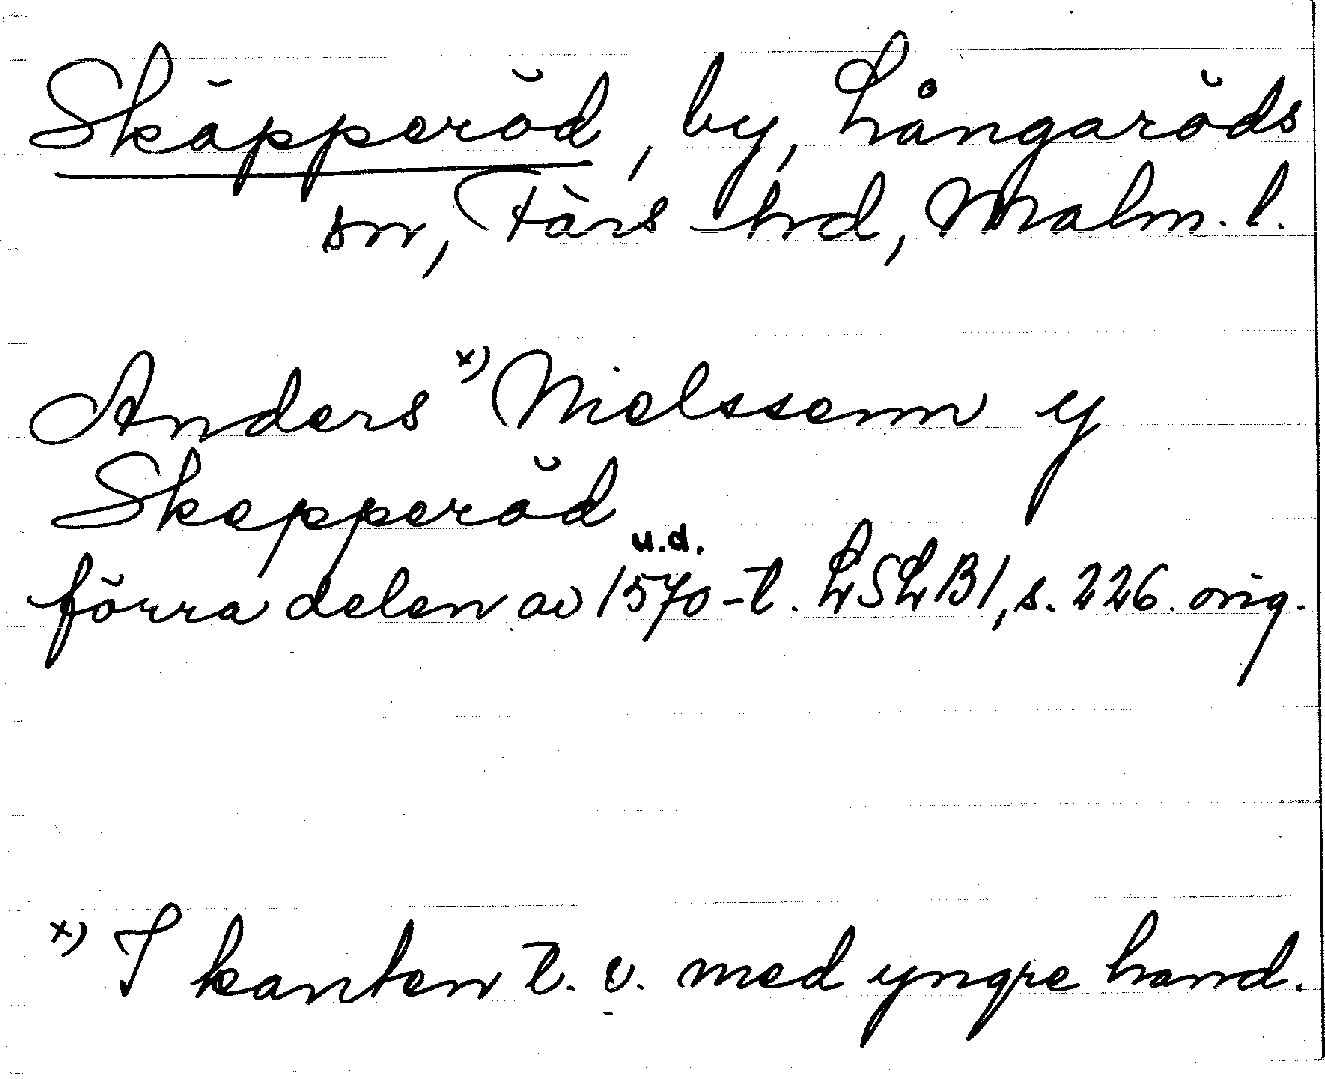 Skäpperöd, by, Långaröds
sn, Färs hd, Malm. l.
Anders x) Nielssenn y
Skepperöd
u.d.
förra delen av 1570-t. LSLB1, s. 226. orig.
x) I kanten t. v. med yngre hand.